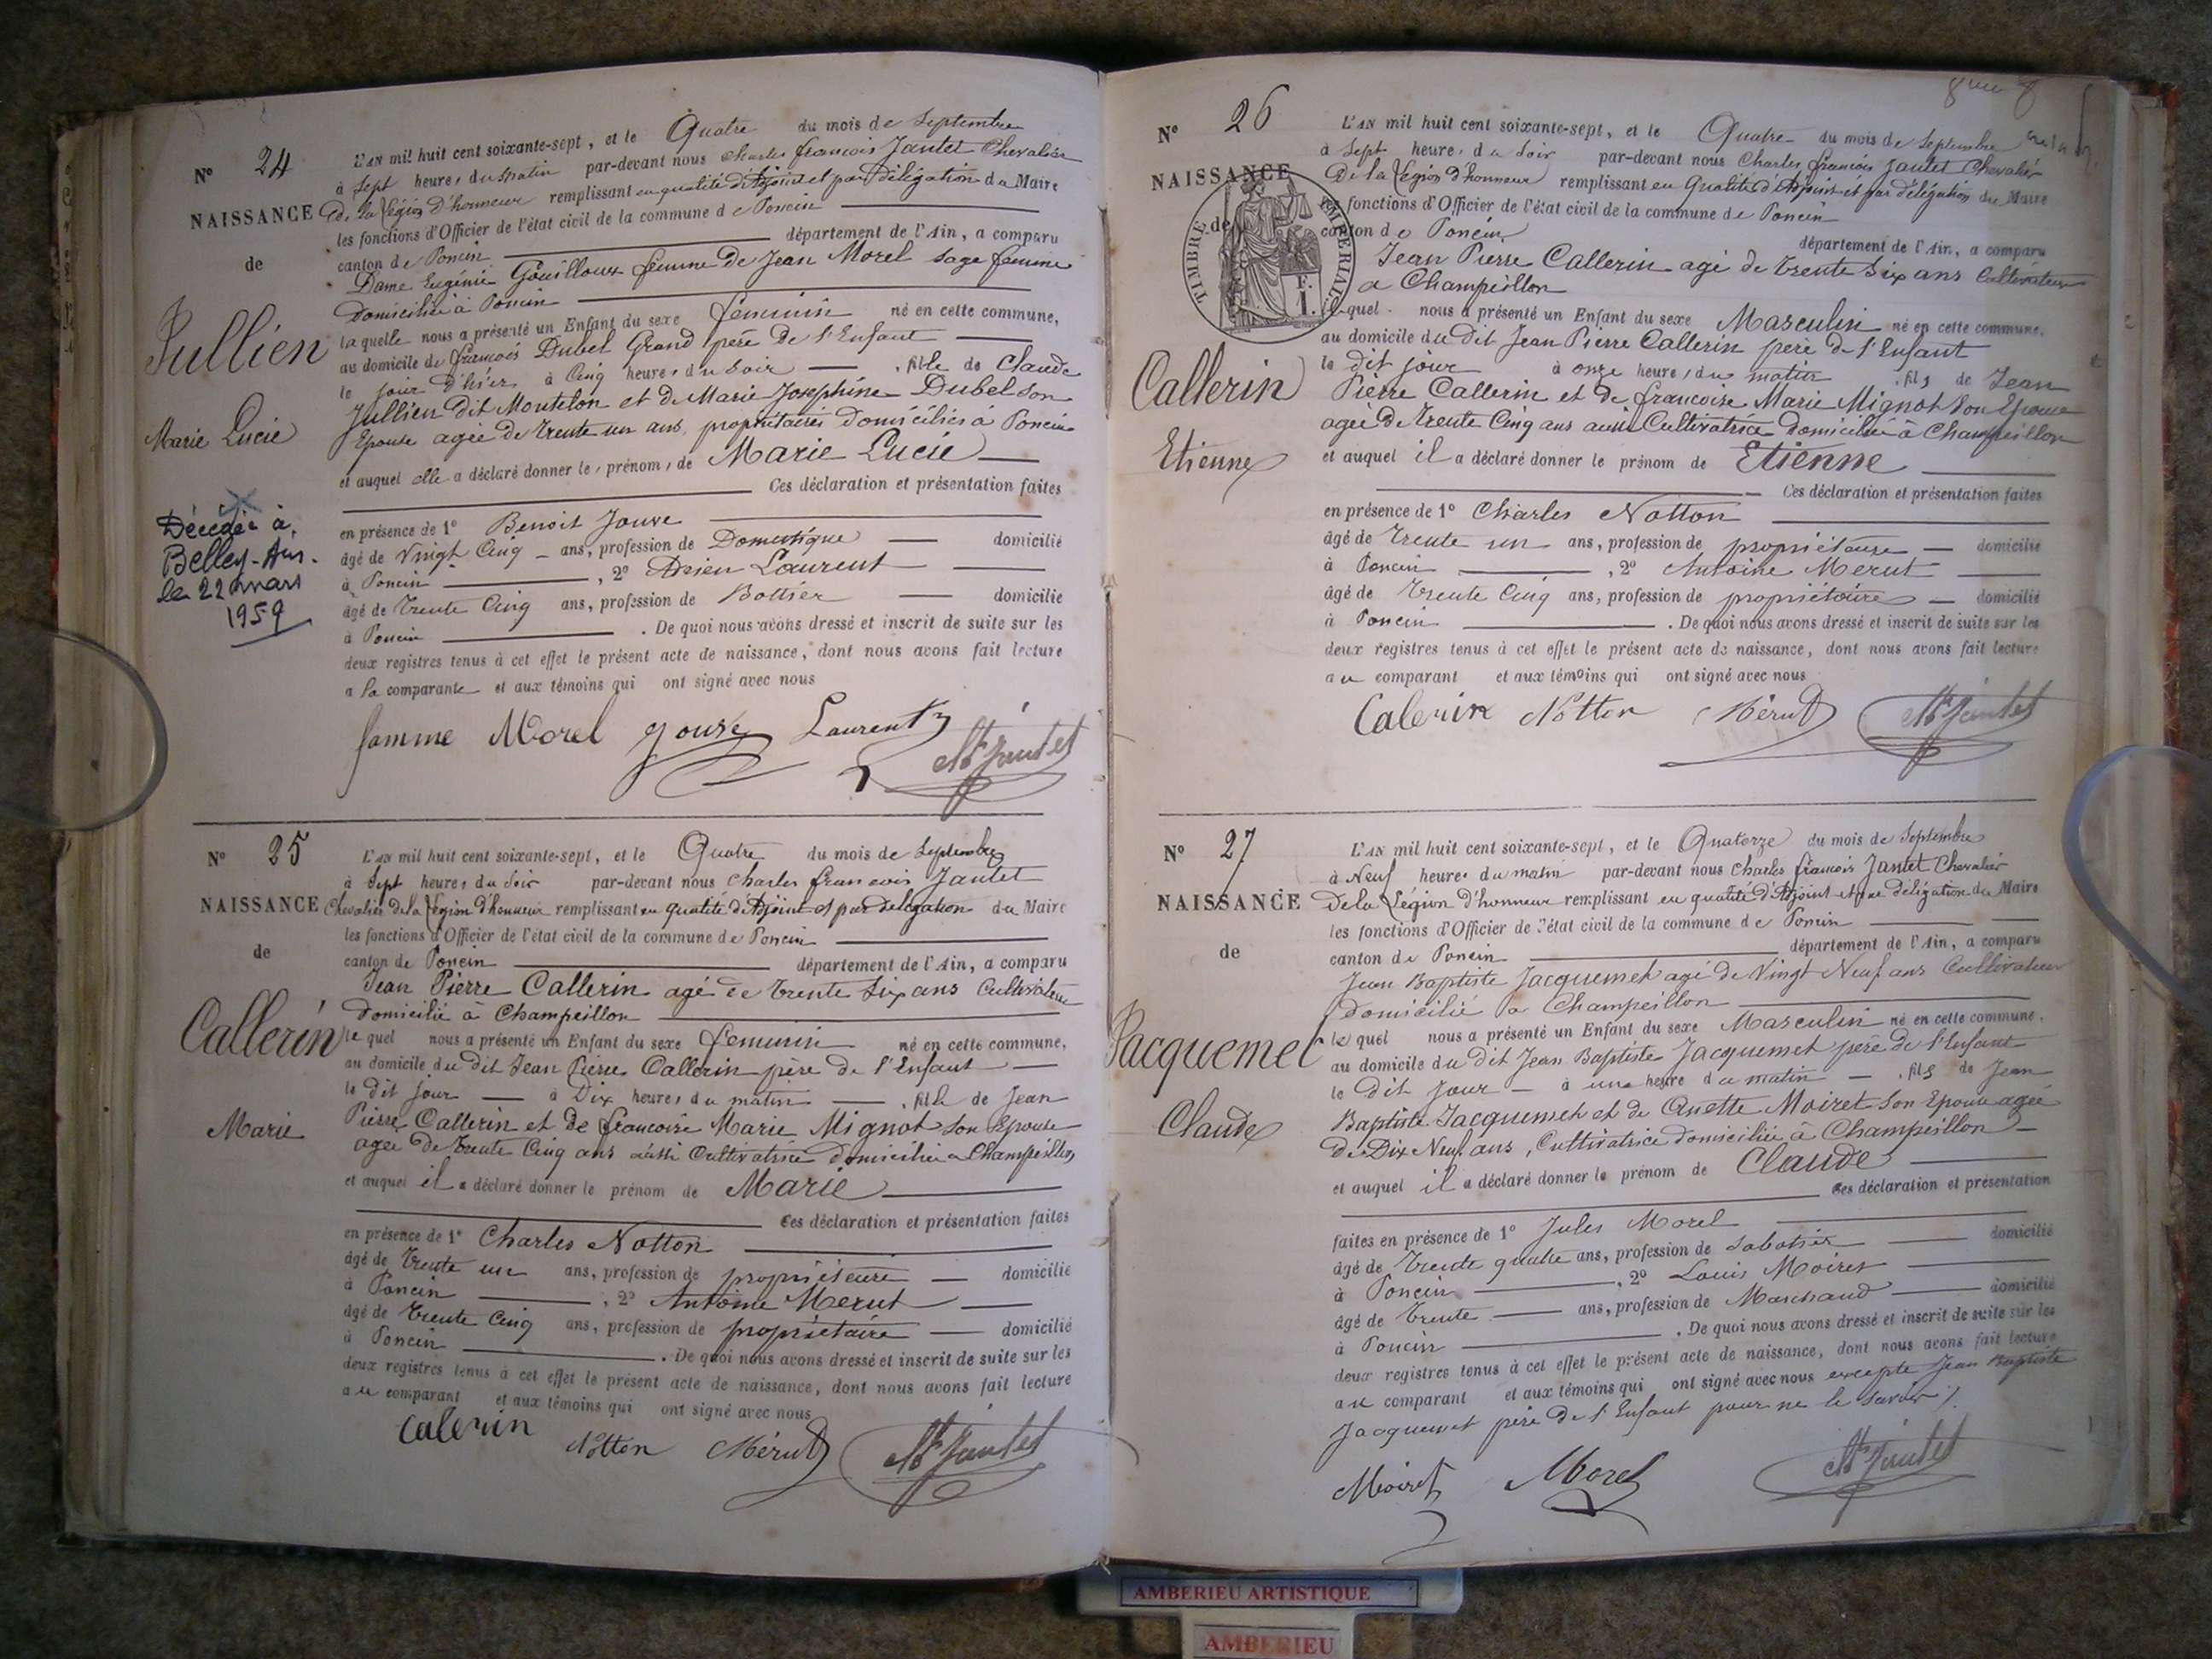 N° 24
NAISSANCE
de
Jullien
Marie Lucie
Décédée à
Belley-Ain.
le 22 mars
1959
L'AN mil huit cent soixante-sept, et le Quatre du mois de Septembre
à Sept heures du matin par-devant nous Charles francois Jantet Chevalier
de la Légion d'honneur remplissant en qualité d'Adjoint et par délégation du Maire
les fonctions d'Officier de l'état civil de la commune de Poncin
canton de Poncin département de l'Ain, a comparu
Dame Eugénie Gouilloux femme de Jean Morel sage femme
Domiciliée à Poncin
laquelle nous a présenté un Enfant du sexe feminin né en cette commune,
au domicile de francois Dubel Grand père de l'Enfant
le jour d'hier à Cinq heures du soir , fille de Claude
Jullien dit Montelon et de Marie Josephine Dubel son
Epouse agée de trente un ans, propriétaires domiciliés à Poncin
et auquel elle a déclaré donner les prénoms de Marie Lucie
Ces déclaration et présentation faites
en présence de 1° Benoit Jouve
âgé de Vingt Cinq ans, profession de Domestique domicilié
à Poncin , 2° Laurent
âgé de trente Cinq ans, profession de Bottier domicilié
à Poncin . De quoi nous avons dressé et inscrit de suite sur les
deux registres tenus à cet effet le présent acte de naissance, dont nous avons fait lecture
a la comparante et aux témoins qui ont signé avec nous
femme Morel Jouve Laurent Jantet
N° 25
NAISSANCE
de
Callerin
Marie
L'AN mil huit cent soixante-sept, et le Quatre du mois de Septembre
à Sept heures du Soir par-devant nous Charles francois Jantet
Chevalier de la Légion d'honneur remplissant en qualité d'Adjoint et par délégation du Maire
les fonctions d'Officier de l'état civil de la commune de Poncin
canton de Poncin département de l'Ain, a comparu
Jean Pierre Callerin agé de trente six ans Cultivateur
Domicilié à Champeillon
lequel nous a présenté un Enfant du sexe feminin né en cette commune,
au domicile du dit Jean Pierre Callerin père de l'Enfant
le dit jour à Dix heures du matin , fille de Jean
Pierre Callerin et de francoise Marie Mignot son Epouse
agée de trente Cinq ans aussi Cultivatrice domiciliée a Champeillon
et auquel il a déclaré donner le prénom de Marie
Ces déclaration et présentation faites
en présence de 1° Charles Notton
âgé de trente un ans, profession de propriétaire domicilié
à Poncin , 2° Antoine Merut
âgé de trente Cinq ans, profession de propriétaire domicilié
à Poncin . De quoi nous avons dressé et inscrit de suite sur les
deux registres tenus à cet effet le présent acte de naissance, dont nous avons fait lecture
au comparant et aux témoins qui ont signé avec nous
Calerin Notton Mérut Jantet
N° 26
NAISSANCE
de
TIMBRE IMPERIAL
F.
1.
Callerin
Etienne
L'AN mil huit cent soixante-sept, et le Quatre du mois de Septembre
à Sept heures du Soir par-devant nous Charles francois Jantet Chevalier
De la Légion d'honneur remplissant en Qualité d'Adjoint et par délégation du Maire
les fonctions d'Officier de l'état civil de la commune de Poncin
canton de Poncin département de l'Ain, a comparu
Jean Pierre Callerin agé de trente Six ans Cultivateur
a Champeillon
lequel nous a présenté un Enfant du sexe Masculin né en cette commune,
au domicile du dit Jean Pierre Callerin père de l'Enfant
le dit jour à onze heures du matin , fils de Jean
Pierre Callerin et de francoise Marie Mignot Son Epouse
agée de trente Cinq ans aussi Cultivatrice domiciliée à Champeillon
et auquel il a déclaré donner le prénom de Etienne
Ces déclaration et présentation faites
en présence de 1° Charles Notton
âgé de trente un ans, profession de propriétaire domicilié
à Poncin , 2° Antoine Merut
âgé de trente Cinq ans, profession de propriétaire domicilié
à Poncin . De quoi nous avons dressé et inscrit de suite sur les
deux registres tenus à cet effet le présent acte de naissance, dont nous avons fait lecture
au comparant et aux témoins qui ont signé avec nous
Calerin Notton Mérut Jantet
N° 27
NAISSANCE
de
Jacquemet
Claude
L'AN mil huit cent soixante-sept, et le Quatorze du mois de Septembre
à Neuf heures du matin par-devant nous Charles francois Jantet Chevalier
De la Légion d'honneur remplissant en qualité d'Adjoint et par délégation du Maire
les fonctions d'Officier de l'état civil de la commune de Poncin
canton de Poncin département de l'Ain, a comparu
Jean Baptiste Jacquemet agé de Vingt Neuf ans Cultivateur
domicilié a Champeillon
lequel nous a présenté un Enfant du sexe Masculin né en cette commune,
au domicile du dit Jean Baptiste Jacquemet père de l'Enfant
le dit Jour à une heure du matin , fils de Jean
Baptiste Jacquemet et de Anette Moiret Son Epouse agée
de Dix Neuf ans, Cultivatrice domiciliée à Champeillon
et auquel il a déclaré donner le prénom de Claude
Ces déclaration et présentation
faites en présence de 1° Jules Morel
âgé de trente quatre ans, profession de Sabotier domicilié
à Poncin , 2° Louis Moiret
âgé de trente ans, profession de Marchand domicilié
à Poncin . De quoi nous avons dressé et inscrit de suite sur les
deux registres tenus à cet effet le présent acte de naissance, dont nous avons fait lecture
au comparant et aux témoins qui ont signé avec nous excepté Jean Baptiste
Jacquemet père de l'Enfant pour ne le savoir
Moiret Morel Jantet
AMBERIEU ARTISTIQUE
AMBERIEU